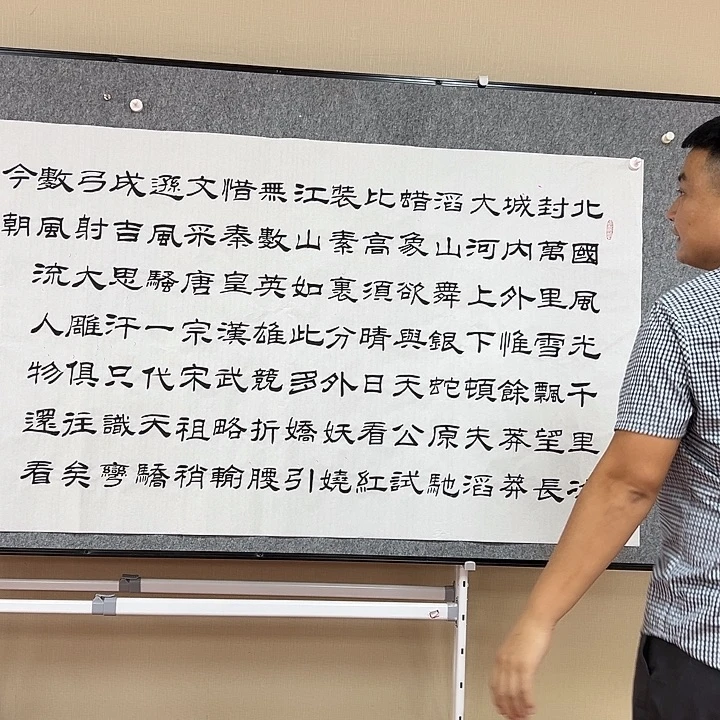 北國風光千里
封萬里雪飄望長
城内外惟餘莽莽
大河上下頓失滔
滔山舞銀蛇原馳
蜡象欲與天公試
比高須晴日看紅
裝素裏分外妖嬈
江山如此多嬌引
無數英雄競折腰
惜秦皇漢武略輸
文采唐宗宋祖稍
遜風騷一代天驕
成吉思汗只識彎
弓射大雕俱往矣
數風流人物還看
今朝